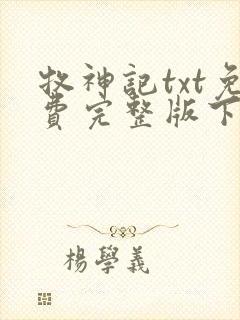 牧神記txt免
費完整版下
楊學義